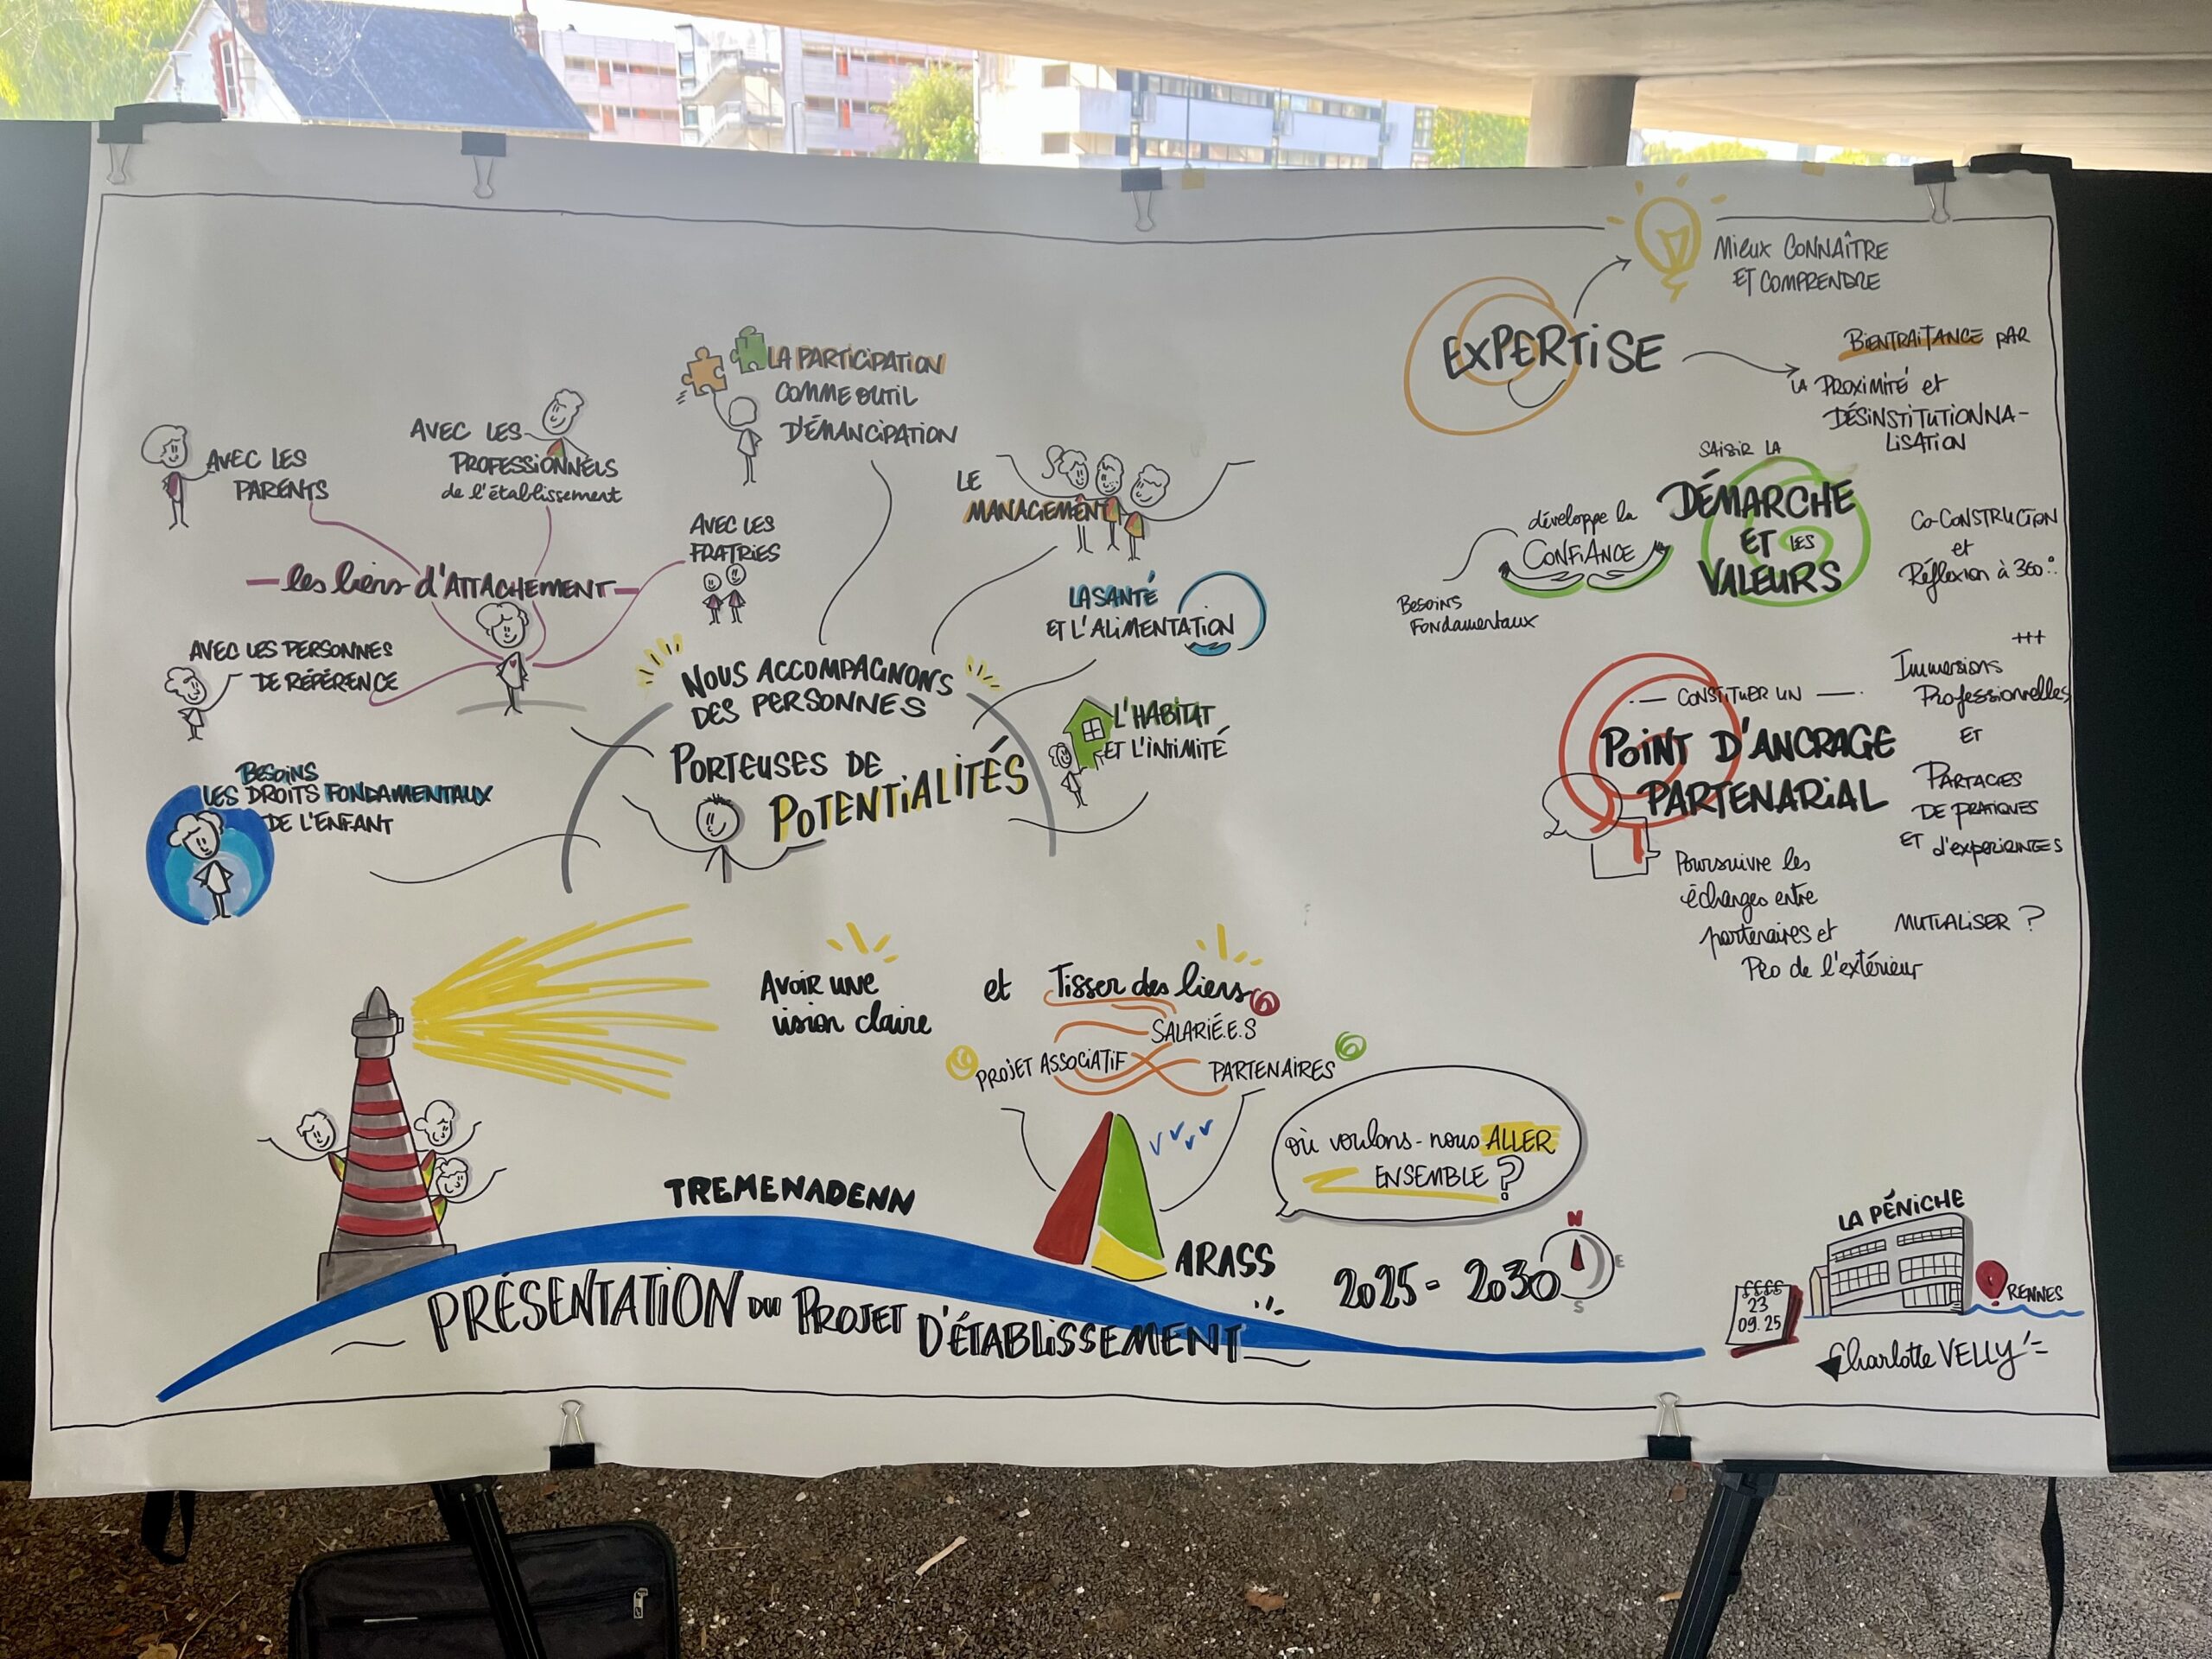 MIEUX CONNAÎTRE
ET COMPRENDRE
EXPERTISE
BIENTRAITANCE PAR
LA PROXIMITÉ et
DÉSINSTITUTIONNA-
LISATION
LA PARTICIPATION
COMME OUTIL
D'ÉMANCIPATION
AVEC LES
PARENTS
AVEC LES
PROFESSIONNELS
de l'établissement
AVEC LES
FRATRIES
les liens d'ATTACHEMENT
AVEC LES PERSONNES
DE RÉFÉRENCE
BESOINS
LES DROITS FONDAMENTAUX
DE L'ENFANT
LE
MANAGEMENT
LA SANTÉ
ET L'ALIMENTATION
L'HABITAT
ET L'INTIMITÉ
NOUS ACCOMPAGNONS
DES PERSONNES
PORTEUSES DE
POTENTIALITÉS
SAISIR LA
DÉMARCHE
ET LES
VALEURS
développe la
CONFIANCE
Besoins
Fondamentaux
Co-CONSTRUCTION
et
Réflexion à 360°
+++
Immersions
Professionnelles
ET
PARTAGES
DE PRATIQUES
ET d'expériences
MUTUALISER ?
CONSTITUER UN
POINT D'ANCRAGE
PARTENARIAL
Poursuivre les
échanges entre
partenaires et
Pro de l'extérieur
Avoir une
vision claire
et
Tisser des liens
SALARIÉ.E.S
PROJET ASSOCIATIF
PARTENAIRES
où voulons-nous ALLER
ENSEMBLE ?
TREMENADENN
ARASS
PRÉSENTATION DU PROJET D'ÉTABLISSEMENT
2025 - 2030
N
E
S
LA PÉNICHE
RENNES
23
09.25
Charlotte VELLY